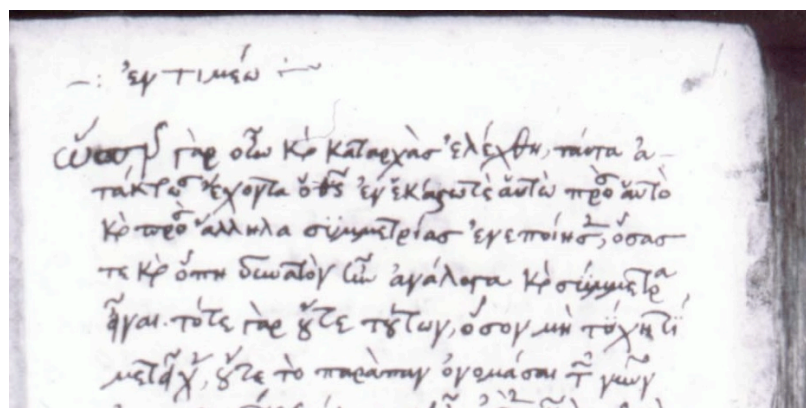 ἐν τιμέω
ὥσπερ γὰρ οὖν καὶ καταρχὰς ἐλέχθη, ταῦτα ἀ-
τάκτως ἔχοντα ὁ θεὸς ἐν ἑκάστωτε αὐτῶ πρὸς αὐτὸ
καὶ πρὸς ἄλληλα συμμετρίας ἐνεποίησεν, ὅσας
τε καὶ ὅπη δυνατὸν ἦν ἀνάλογα καὶ σύμμετρα
εἶναι. τότε γὰρ οὔτε τούτων, ὅσον μὴ τύχη τϊ
μετεῖχεν, οὔτε τὸ παράπαν ὀνομάσαι τῶν νῦν